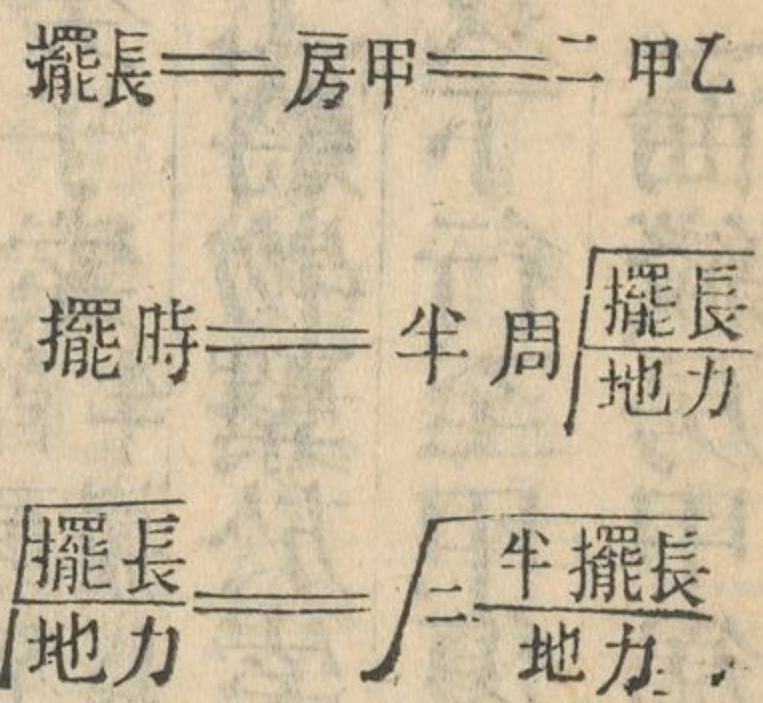 擺長=房甲=二甲乙
擺時=半周√擺長/地力
√擺長/地力=√二 半擺長/地力